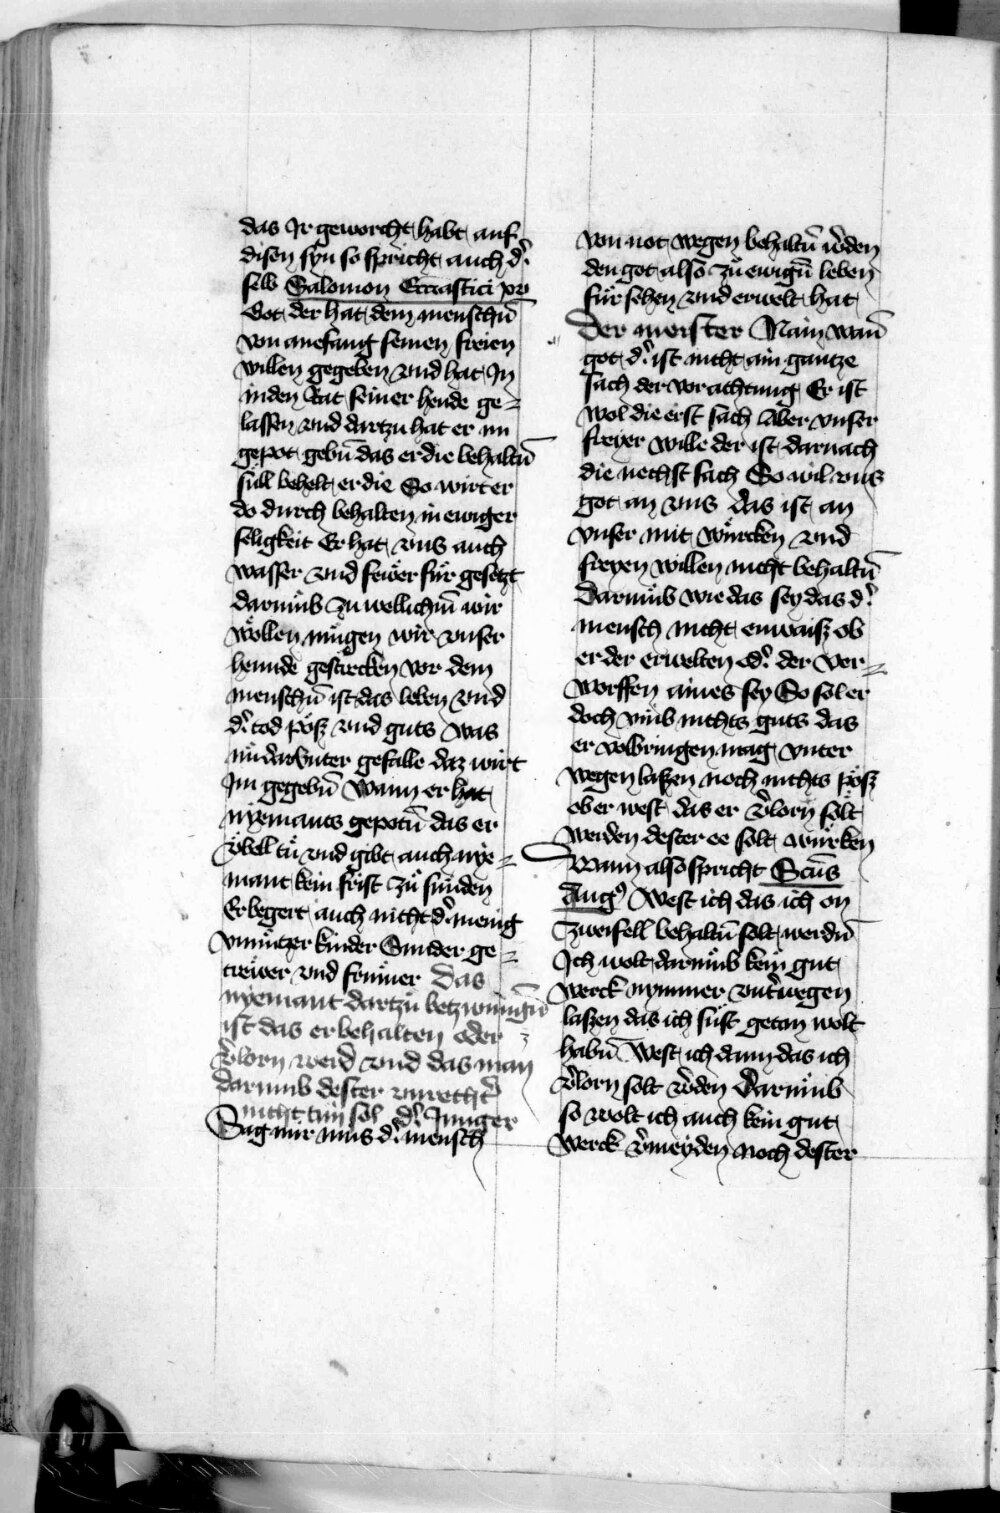 das Ir geworcht habt auf
disen syn so spricht auch d᷑
selb Salomon Eccastici xv
Got der hat dem menschū
von anefang seinen freien
willen gegeben vnd hat In
in den Rat seiner hende ge⸗
lassen vnd dartzu hat er im
gepot gebū das er die behaltū
süll behelt er die So wirt er
do durch behalten in ewiger
seligkeit Er hat vns auch
wasser vnd fewer für gesetzt
darumb zu wellichm̄ wir
wöllen mügen wir vnser
hennde gestrecken vor dem
menschū ist das leben vnd
d᷑ tod pöß vnd guts was
im darvnter gefalle daz wirt
Im gegebū Wann er hat
nyemants gepotū das er
vbell tu vnd gibt auch nye⸗
mant kein frist zu sunden
Er begert auch nicht d᷑ menig
vnnützer kinder Sunder ge⸗
trewer vnd frumer Das
nyemant dartzu betzwungē
ist das er behalten oder
v᷑lorn werd vnd das man
darumb dester vnrecht᷑
nicht tun sol d᷑ Junger
Sag mir mus d᷑ mensch
von not wegen behaltū w᷑den
den got also zu ewigū leben
für sehen vnd erwelt hat
Der meister Nain wan̄
got d᷑ ist nicht ain gantze
sach der vorachtung Er ist
wol die erst sach Aber vnser
freyer wille der ist darnach
die nechst sach So wil vns
got an vns das ist an
vnser mit würcken vnd
freyen willen nicht behaltū
Darumb wie das sey das d᷑
mensch nicht enwaiß ob
er der erwelten od᷑ der ver⸗
worffen aines sey So sol er
doch vmb nichts guts das
er volbringen mag vnter
wegen laßen noch nichts pöß
ob er west das er v᷑lorn solt
werden dester ee solt würken
Wann also spricht Scūs
Augꝰ West ich das ich on
zweifell behaltū solt werdū
Ich wolt darumb kein gut
werck nymmer vnt᷑wegen
laßen das ich sust getan wolt
habū West ich dann das ich
v᷑lorn solt w᷑den Darumb
so wolt ich auch kein gut
werck v᷑meyden noch dester